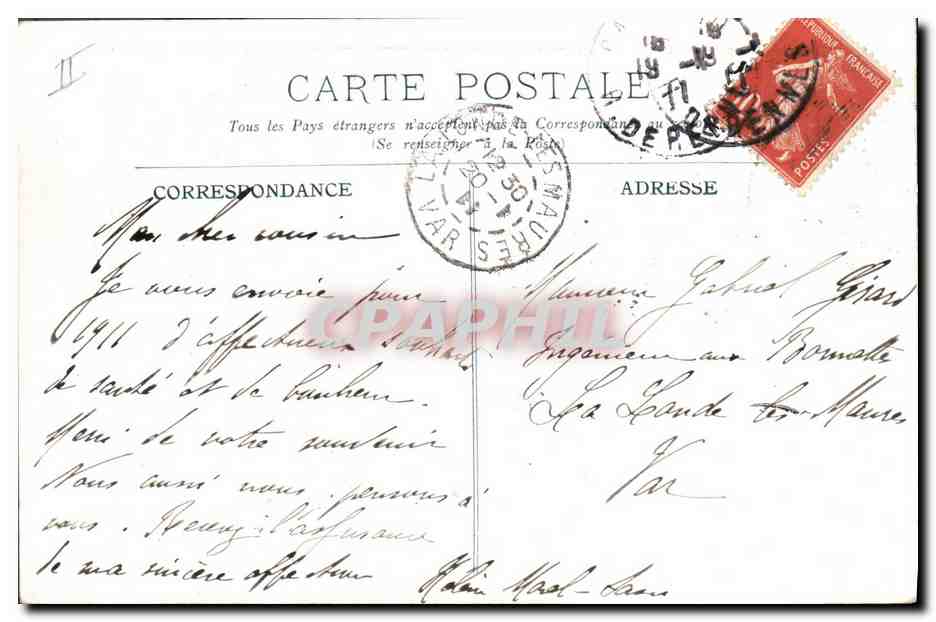 II
CARTE POSTALE
Tous les Pays étrangers n'acceptent pas la Correspondance au
(Se renseigner à la Poste)
CORRESPONDANCE
ADRESSE
RÉPUBLIQUE FRANÇAISE
10
POSTES
EPERNAY
LA LONDE LES MAURES
12 30
20 - 1
11
VAR
CPAPHIL
Mon cher cousin
Je vous envoie pour
1911 d'affectueux souhaits
de santé et de bonheur.
Merci de votre souvenir
Nous aussi nous pensons à
vous. Recevez l'assurance
de ma sincère affection
Monsieur Gabriel Girard
Ingénieur aux Bormettes
La Londe les Maures
Var